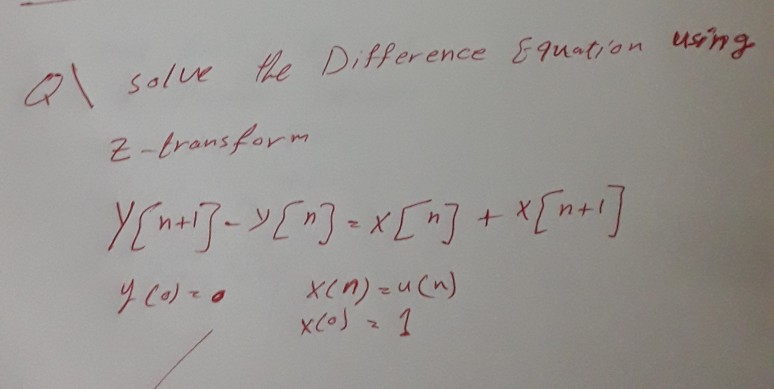 Q\ solve the Difference Equation using
Z-transform
Y[n+1]-y[n]=x[n] + x[n+1]
y(0)=0 x(n)=u(n)
x(0)=1